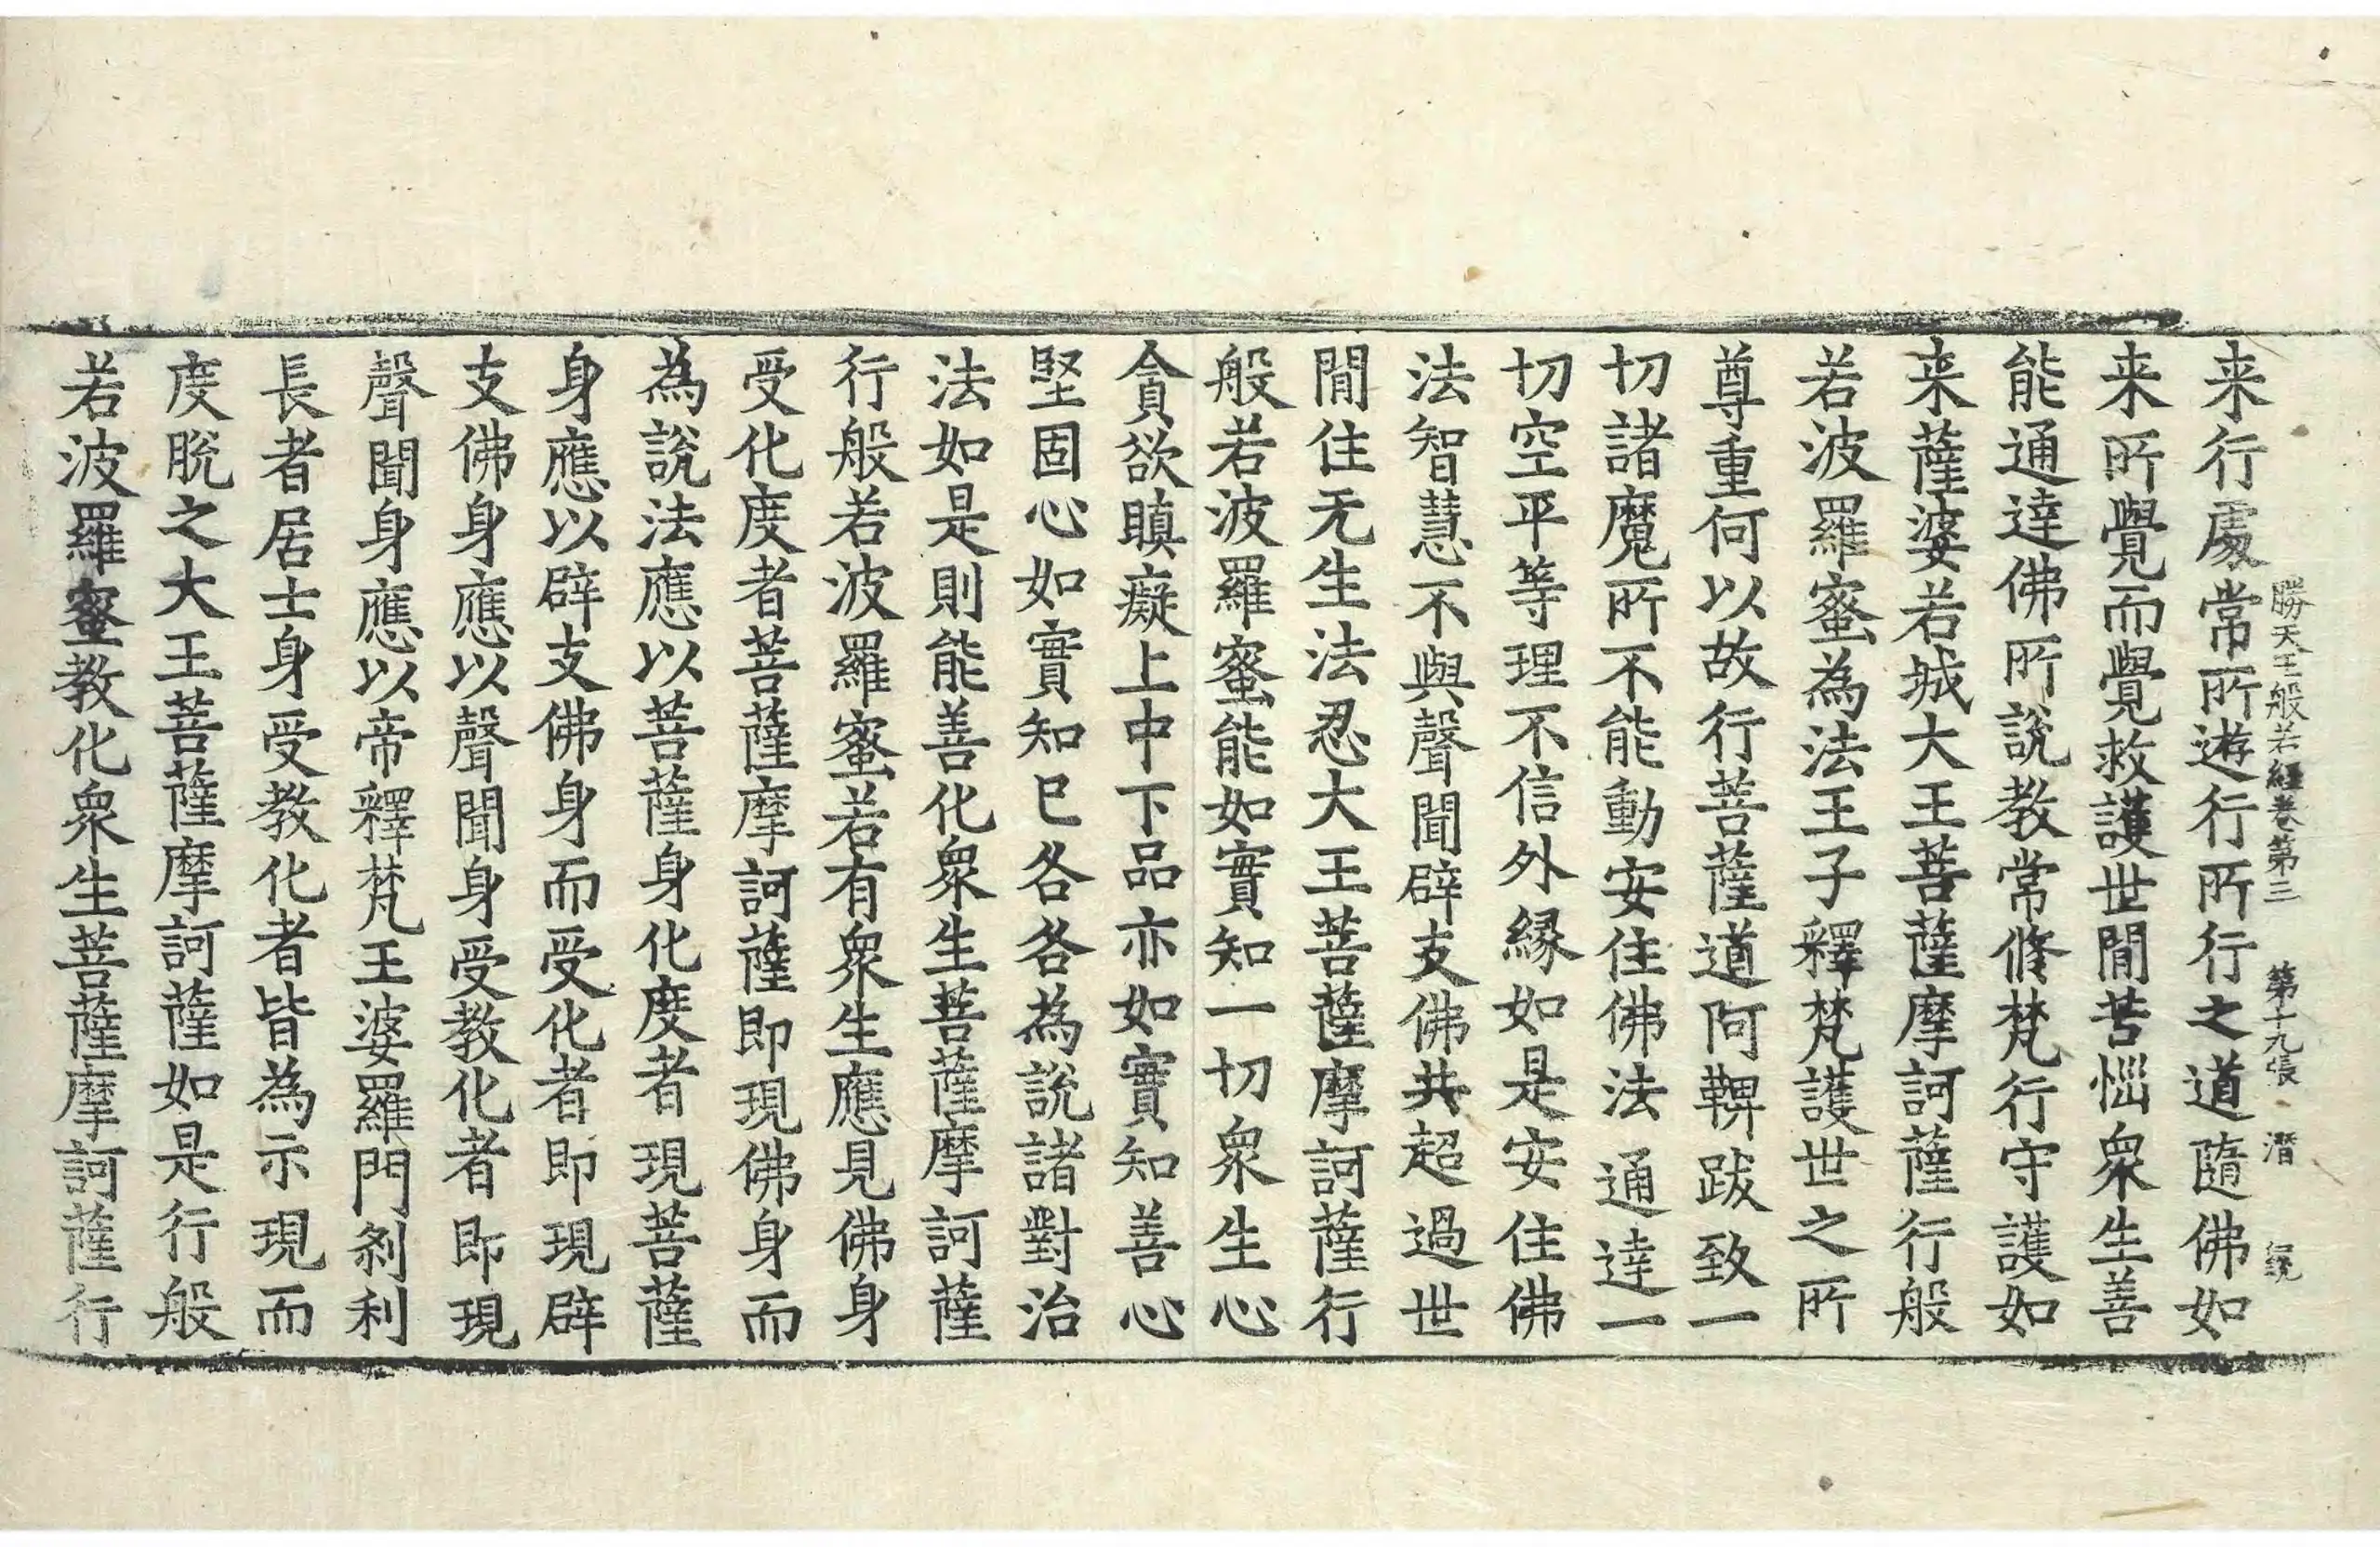 勝天王般若經卷第三 第十九張 潛
来行處常所遊行所行之道隨佛如
来所覺而覺救護世間苦惱衆生善
能通達佛所說教常脩梵行守護如
来薩婆若城大王菩薩摩訶薩行般
若波羅蜜為法王子釋梵護世之所
尊重何以故行菩薩道阿鞞跋致一
切諸魔所不能動安住佛法通達一
切空平等理不信外縁如是安住佛
法智慧不與聲聞辟支佛共超過世
間住无生法忍大王菩薩摩訶薩行
般若波羅蜜能如實知一切衆生心
貪欲瞋癡上中下品亦如實知善心
堅固心如實知已各各為說諸對治
法如是則能善化衆生菩薩摩訶薩
行般若波羅蜜若有衆生應見佛身
受化度者菩薩摩訶薩即現佛身而
為說法應以菩薩身化度者現菩薩
身應以辟支佛身而受化者即現辟
支佛身應以聲聞身受教化者即現
聲聞身應以帝釋梵王婆羅門剎利
長者居士身受教化者皆為示現而
度脫之大王菩薩摩訶薩如是行般
若波羅蜜教化衆生菩薩摩訶薩行